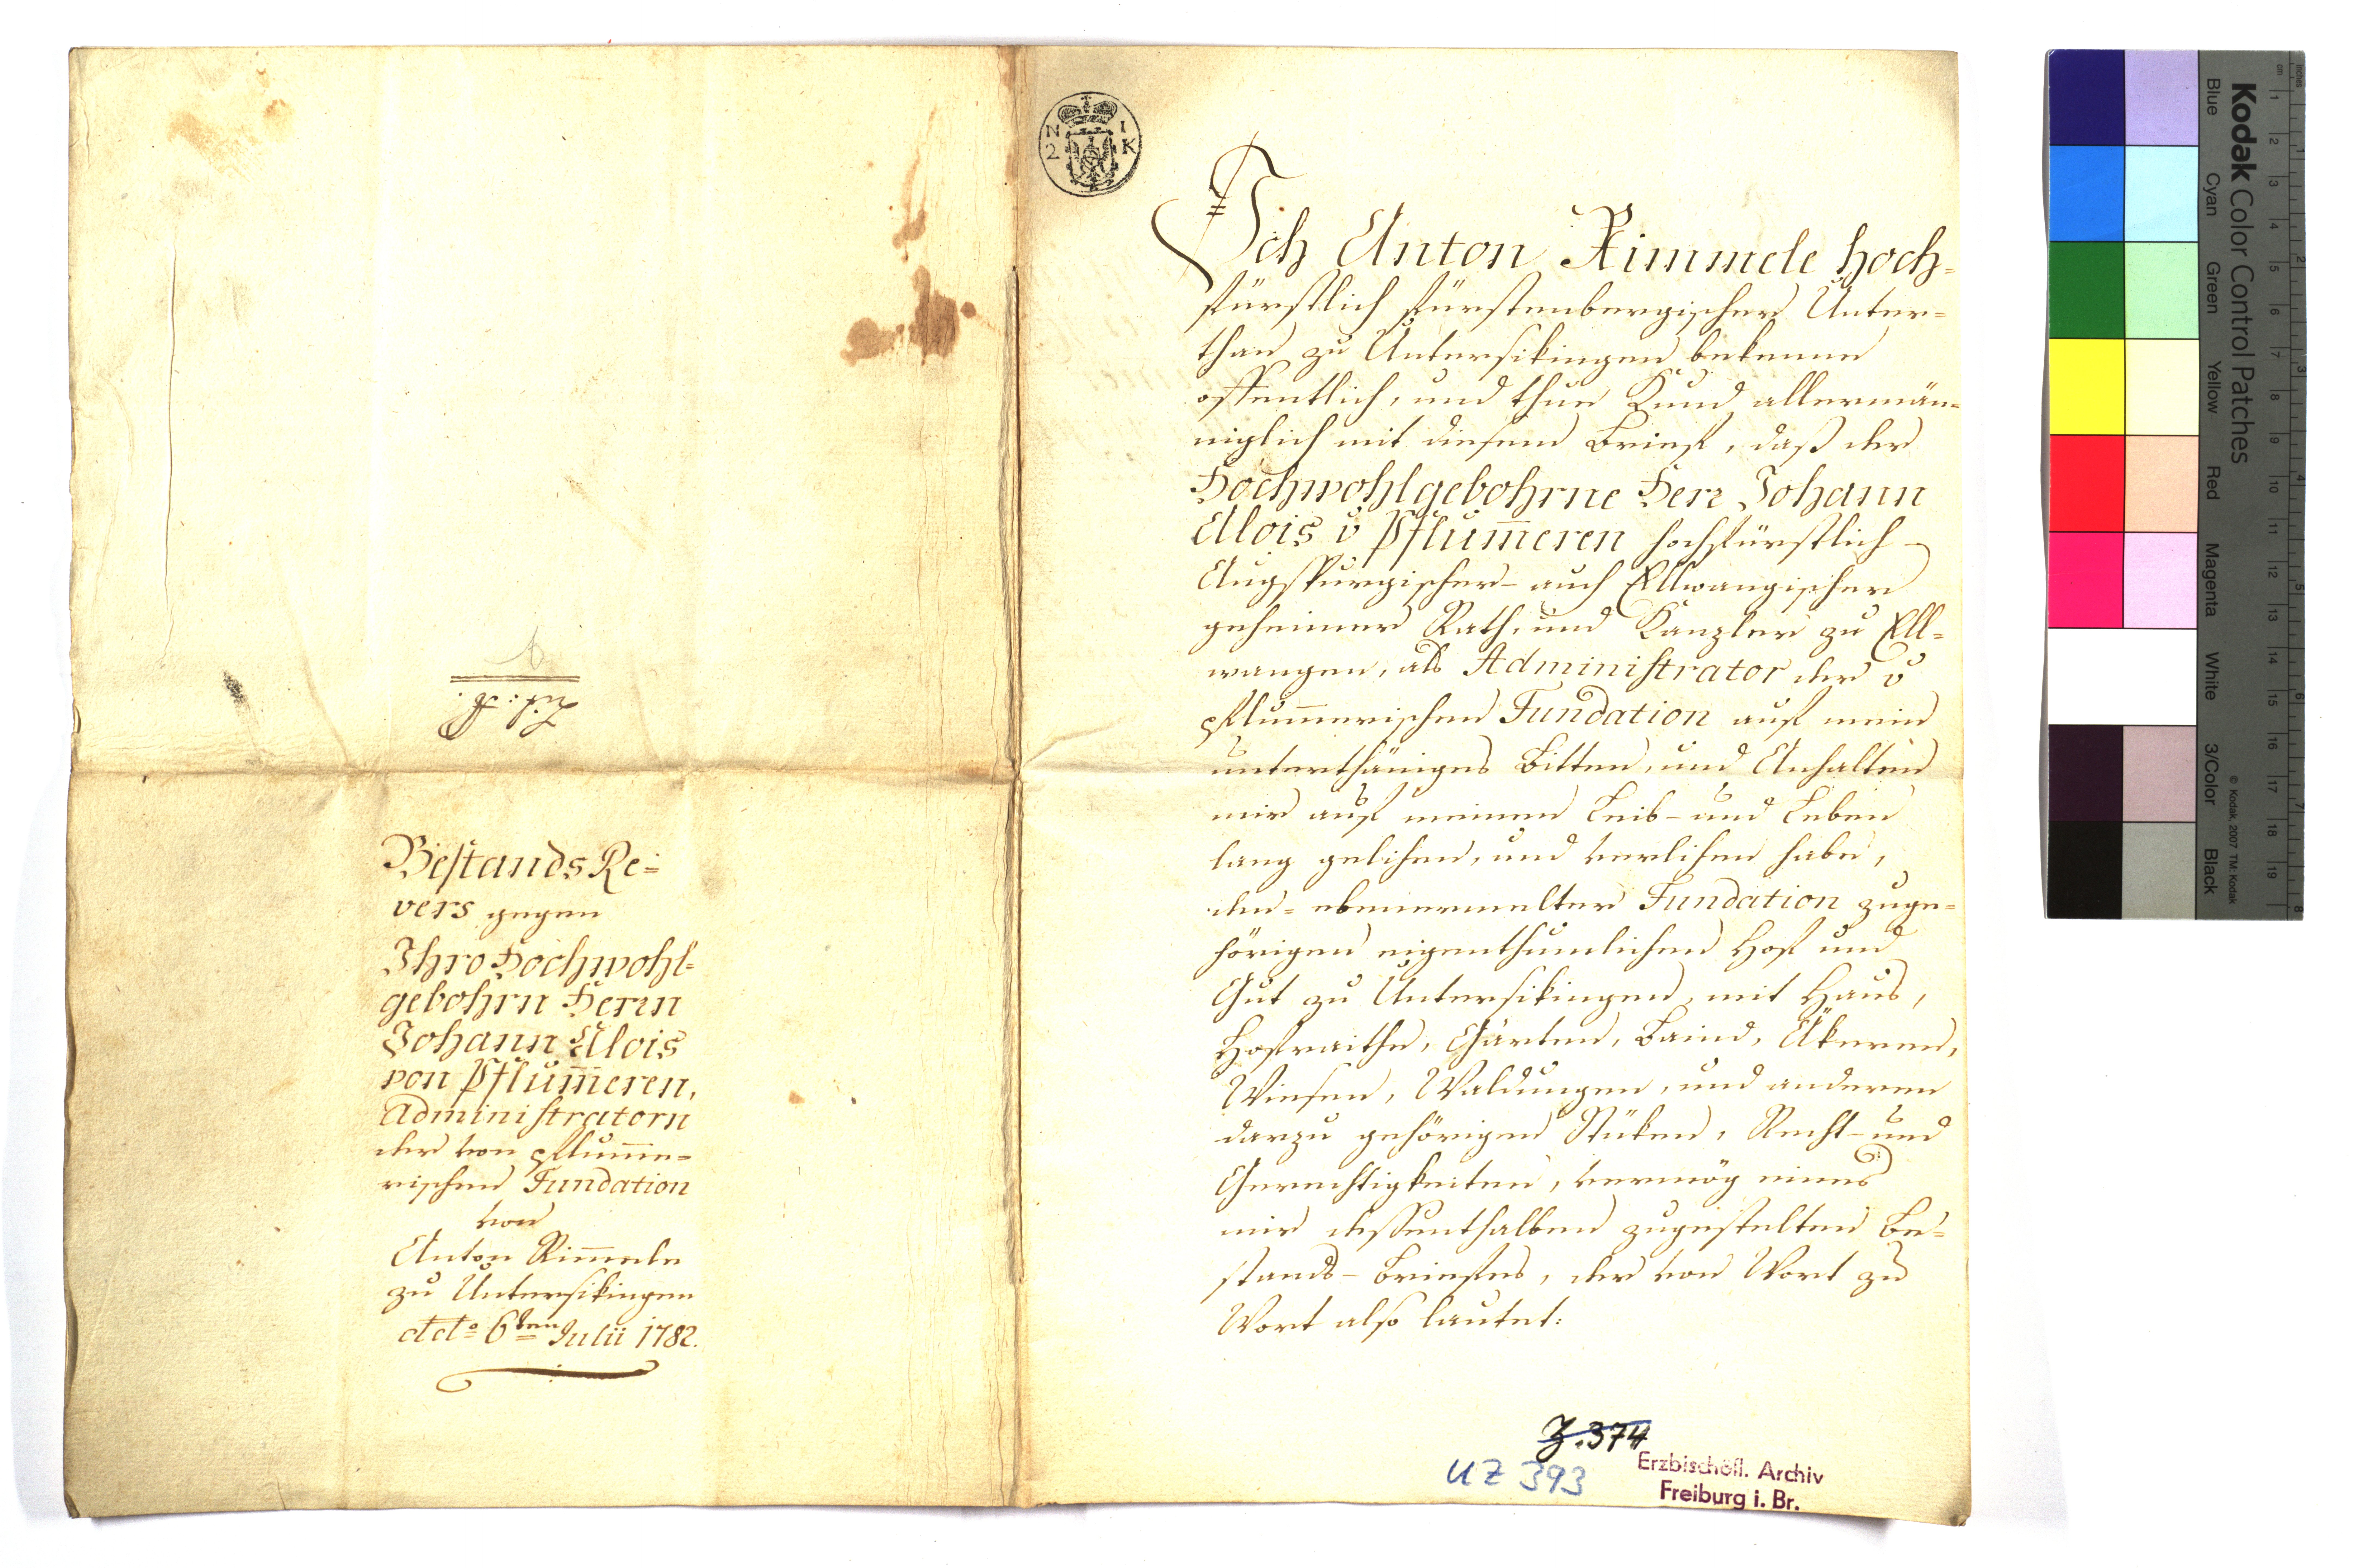 Lit: A.
Bestands Re=
vers gegen
Ihro Hochwohl-
gebohrn Herrn
Johann Alois
von Pflum̄eren,
Administratorn
der von pflum̄e-
rischen Fundation
von
Anton Rim̄ele
zu Untersikingen
dd:o 6ten Julii 1782.
N 1
2 K
Ich Anton Rimmele hoch=
fürstlich fürstenbergischer Unter=
than zu Untersikingen bekenne
offentlich, und thue Kund allermän=
niglich mit diesem Brief, daß der
Hochwohlgebohrne Herr Johann
Alois v Pflum̄eren hochfürstlich-
Augspurgischer- auch Ellwangischer
geheimer Rath, und Kanzler zu Ell=
wangen, als Administrator der v
pflum̄erischen Fundation auf mein
unterthäniges Bitten, und Anhalten
mir auf meinen Leib- und Leben
lang gelihen, und verlihen habe,
den- ebenermelter Fundation zuge=
hörigen eigenthumlichen Hof und
Gut zu Untersikingen, mit Haus,
Hofraithe, Gärten, Baind, Äkeren,
Wiesen, Waldungen, und anderen
darzu gehörigen Stüken, Recht- und
Gerechtigkeiten, vermög eines
mir dessenthalben zugestelten Be=
stands-Briefes, der von Wort zu
Wort also lautet:
Z. 374
UZ 393
Erzbischöfl. Archiv
Freiburg i. Br.
Kodak Color Control Patches
© Kodak, 2007 TM: Kodak
Blue
Cyan
Green
Yellow
Red
Magenta
White
3/Color
Black
inches
cm
1
2
3
4
5
6
7
8
9
10
11
12
13
14
15
16
17
18
19
1
2
3
4
5
6
7
8